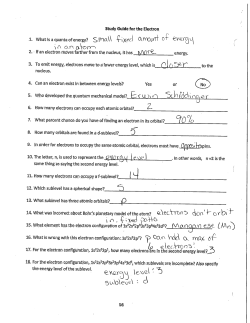 Study Guide for the Electron
1. What is a quanta of energy? Small fixed amount of energy
in an atom
2. If an electron moves farther from the nucleus, it has more energy.
3. To emit energy, electrons move to a lower energy level, which is closer to the
nucleus.
4. Can an electron exist in between energy levels? Yes or No
5. Who developed the quantum mechanical model? Erwin Schrödinger
6. How many electrons can occupy each atomic orbital? 2
7. What percent chance do you have of finding an electron in its orbital? 90%
8. How many orbitals are found in a d-sublevel? 5
9. In order for electrons to occupy the same atomic orbital, electrons must have opposite spins.
10. The letter, n, is used to represent the energy level. In other words, n =2 is the
same thing as saying the second energy level.
11. How many electrons can occupy a f-sublevel? 14
12. Which sublevel has a spherical shape? S
13. What sublevel has three atomic orbitals? p
14. What was incorrect about Bohr's planetary model of the atom? electrons don't orbit
in fixed paths
15. What element has the electron configuration of 1s²2s²2p⁶3s²3p⁶4s²3d⁵? Manganese (Mn)
16. What is wrong with this electron configuration: p can had a max of
6 electrons
17. For the electron configuration, how many electrons are in the second energy level? 3
18. For the electron configuration, which sublevels are incomplete? Also specify
the energy level of the sublevel. energy level: 3
sublevel: d
56